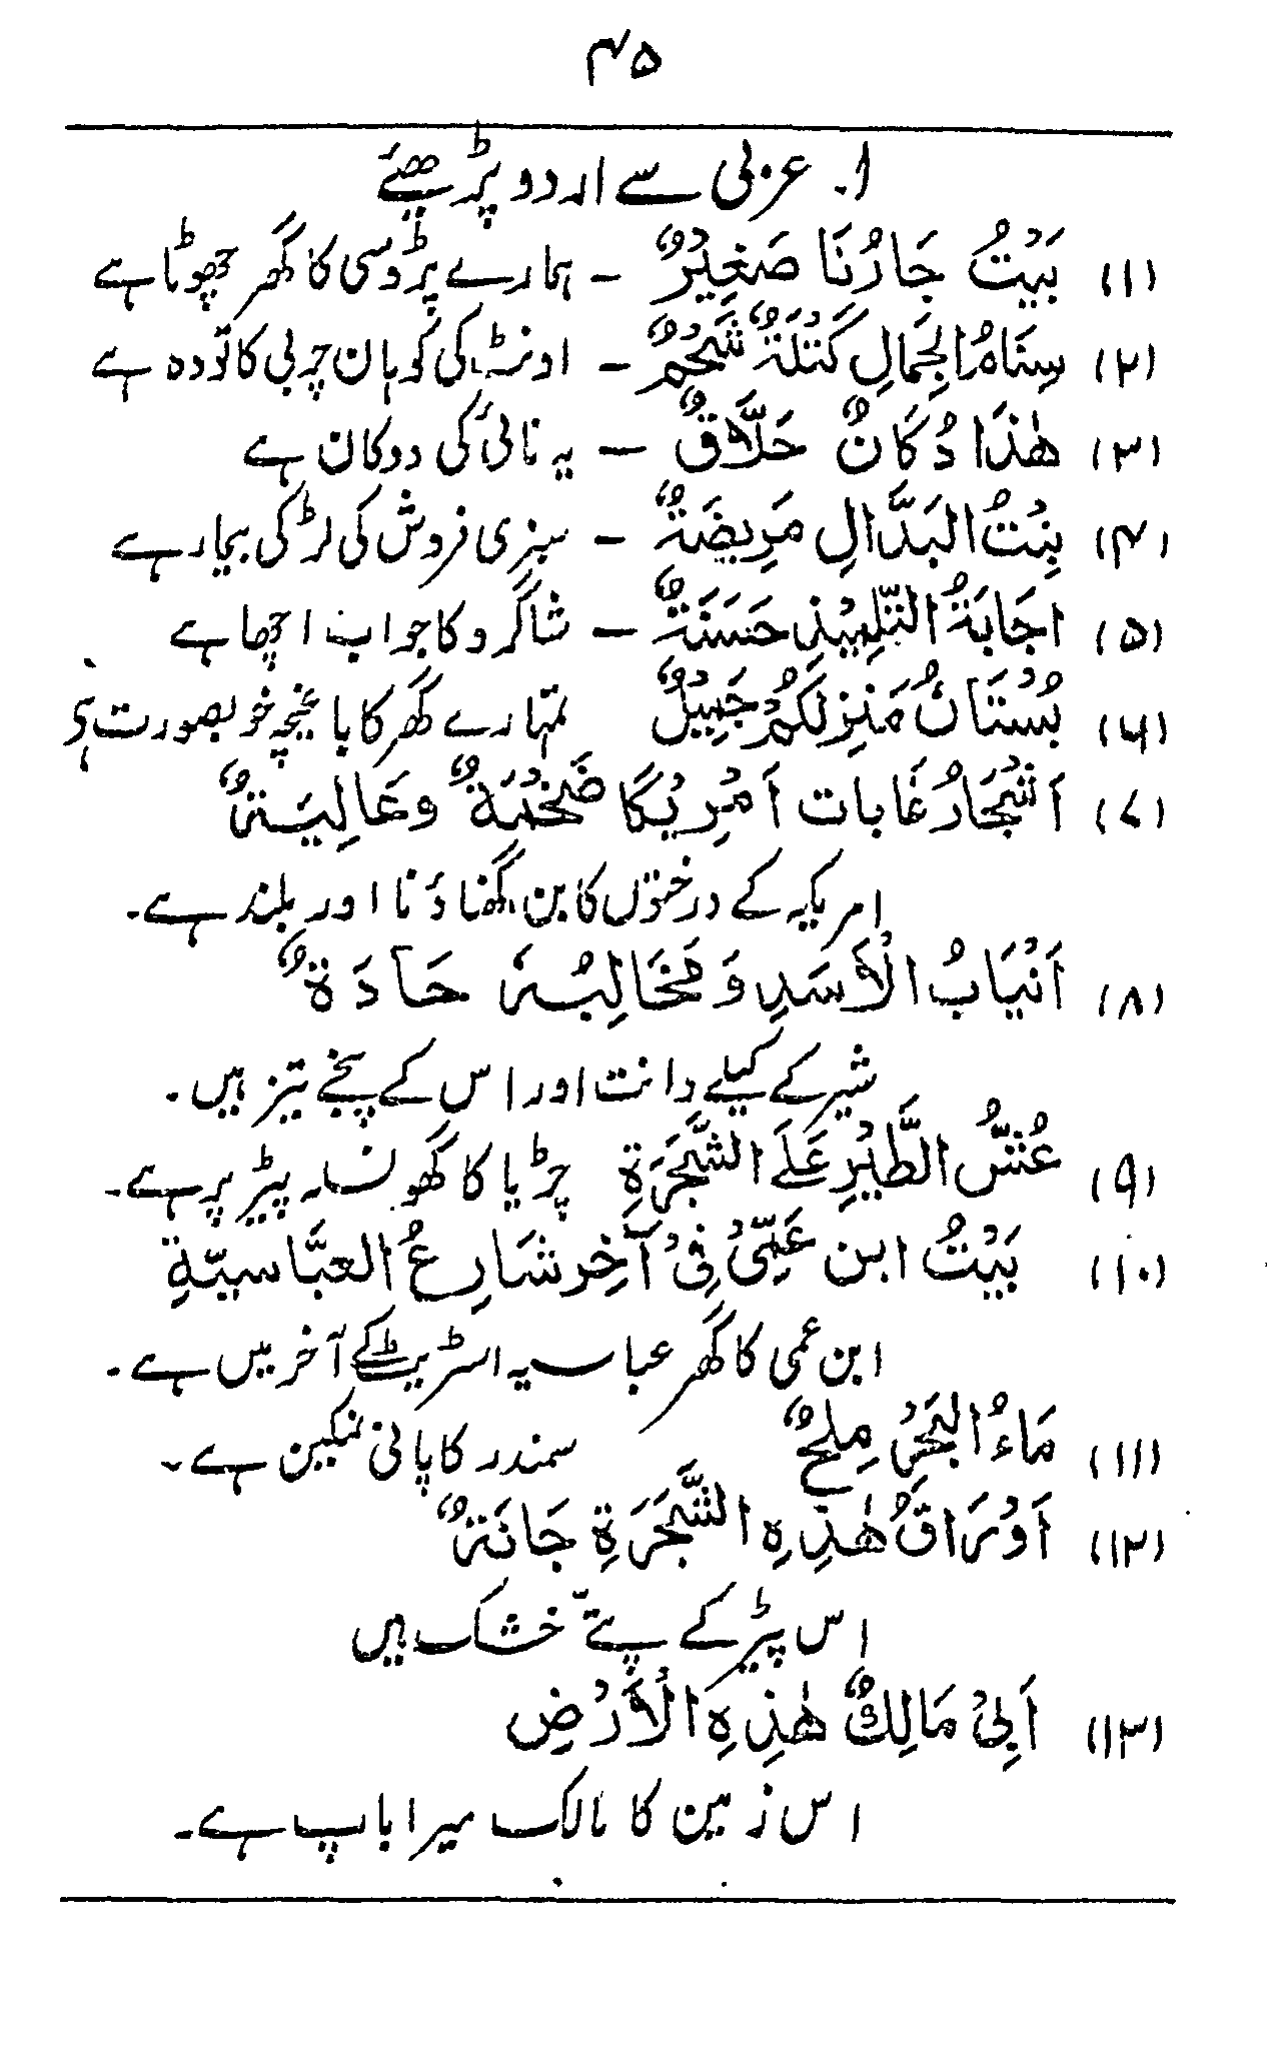 ۴۵
۱. عربی سے اردو پڑھیئے
(۱) بَيْتُ جَارُنَا صَغِيْرٌ - ہمارے پڑوسی کا گھر چھوٹا ہے
(۲) سِنَامُ الْجِمَالِ كَتْلَةٌ شَحْمٌ - اونٹ کی کوہان چربی کا تودہ ہے
(۳) هٰذَا دُكَانٌ حَلَّاقٌ - یہ نائی کی دوکان ہے
(۴) بِنْتُ البَدَّالِ مَرِيضَةٌ - سبزی فروش کی لڑکی بیمار ہے
(۵) اجَابَةُ التِّلْمِيْذِ حَسَنَةٌ - شاگرد کا جواب اچھا ہے
(۶) بُسْتَانُ مَنِزِلَكُمْ جَمِيْلٌ تمہارے گھر کا باغیچہ خوبصورت ہے
(۷) اَشْجَارُ غَابات اَمْرِيْكَا ضَخْمَةٌ وعَالِيَةٌ
امریکہ کے درختوں کا بن گھناؤنا اور بلند ہے۔
(۸) اَنْيَابُ الْأَسَدِ وَمَخَالِبُهٗ حَادَةٌ
شیر کے کیلے دانت اور اس کے پنجے تیز ہیں۔
(۹) عُشُّ الطَّيْرِ عَلَے الشَّجَرَةِ چڑیا کا گھونسلہ پیڑ پر ہے۔
(۱۰) بَيْتُ ابن عَمِّىْ فِىْ آخِر شَارِعُ العبَّاسيّةِ
ابن عمی کا گھر عباسیہ اسٹریٹ کے آخر میں ہے۔
(۱۱) مَاءُ الْبَحْرِ مِلحٌ سمندر کا پانی نمکین ہے۔
(۱۲) اَوْرَاقُ هٰذِهِ الشَّجَرَةِ جَافَةٌ
اس پیڑ کے پتّے خشک ہیں
(۱۳) اَبِىْ مَالِكٌ هٰذِهِ الْأَرْضِ
اس زمین کا مالک میرا باپ ہے۔